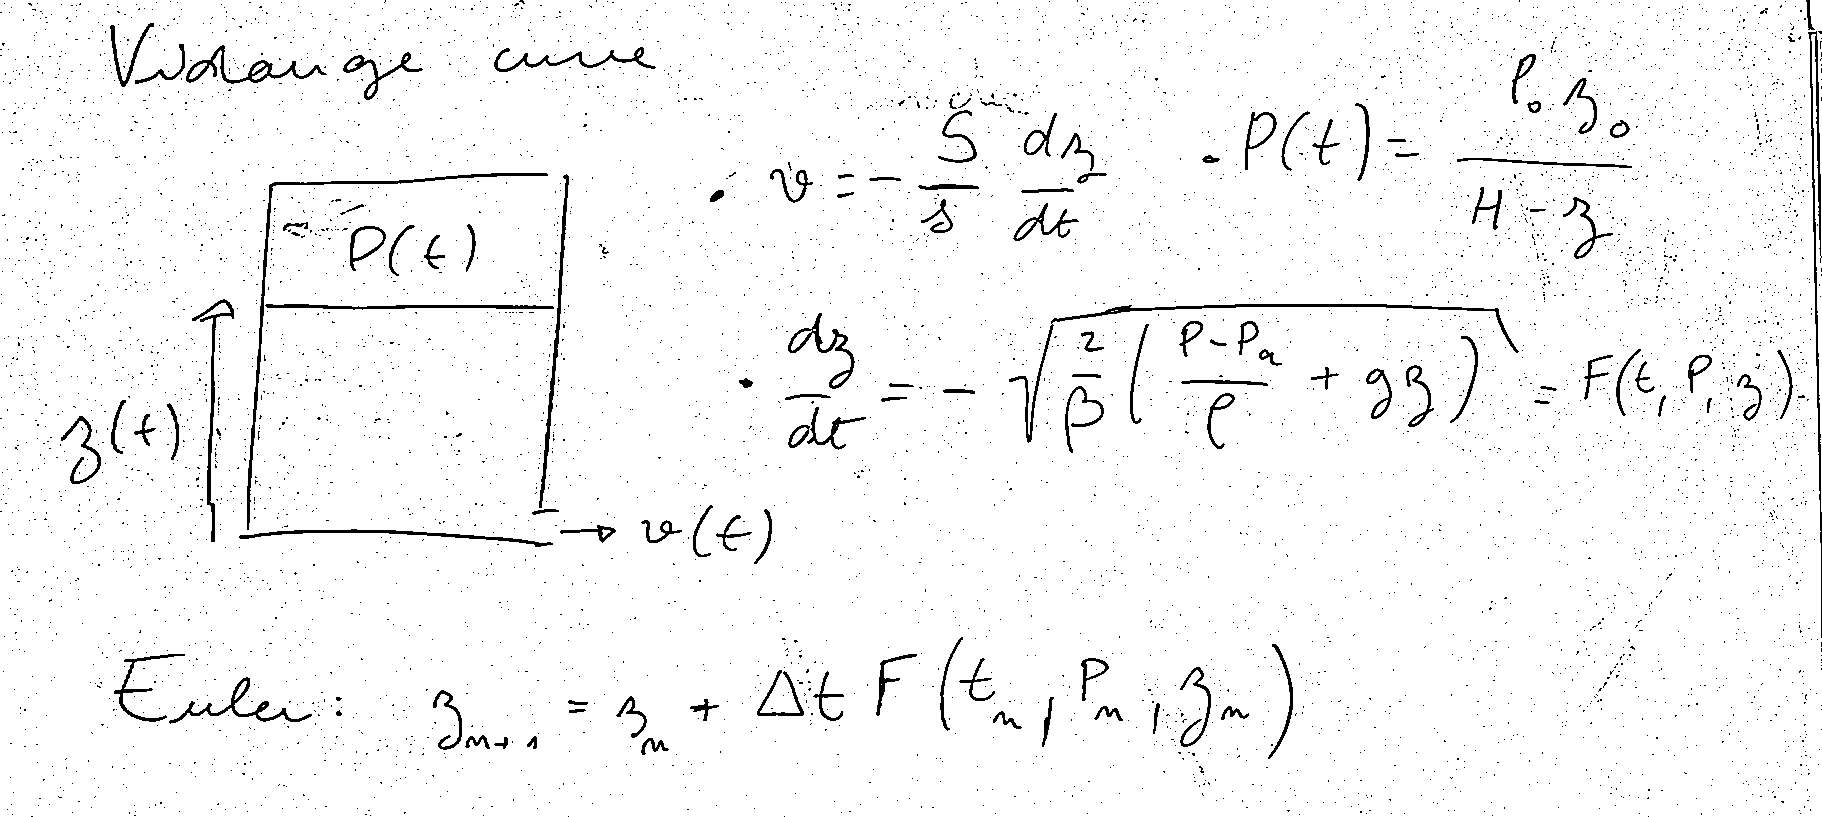 Vidange cuve
v = - S/s dz/dt
P(t) = P₀ z₀ / (H - z)
P(t)
dz/dt = - √(2/β ((P - Pₐ)/ρ + gz)) = F(t, P, z)
z(t)
v(t)
Euler: zₙ₊₁ = zₙ + Δt F(tₙ, Pₙ, zₙ)